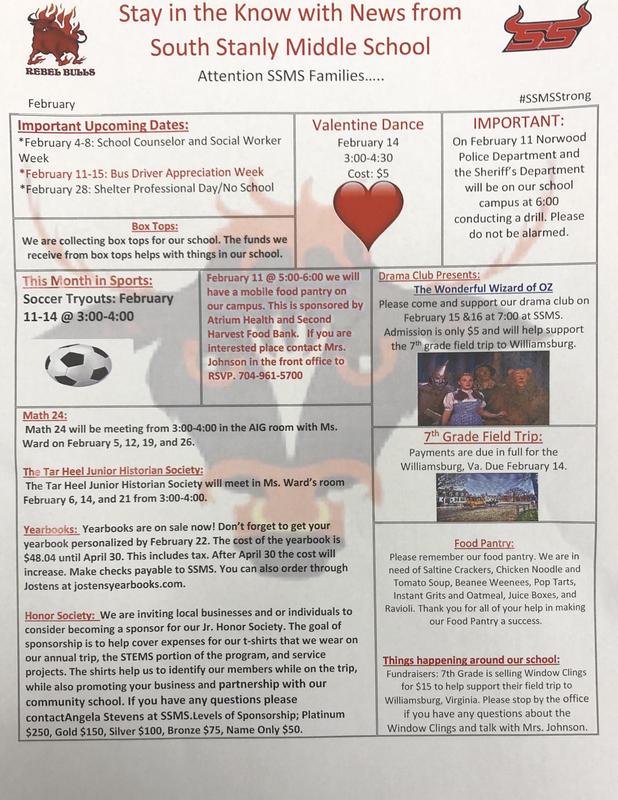 Stay in the Know with News from
South Stanly Middle School
REBEL BULLS
SS
Attention SSMS Families…..
February
#SSMSStrong
Important Upcoming Dates:
*February 4-8: School Counselor and Social Worker
Week
*February 11-15: Bus Driver Appreciation Week
*February 28: Shelter Professional Day/No School
Valentine Dance
February 14
3:00-4:30
Cost: $5
IMPORTANT:
On February 11 Norwood
Police Department and
the Sheriff's Department
will be on our school
campus at 6:00
conducting a drill. Please
do not be alarmed.
Box Tops:
We are collecting box tops for our school. The funds we
receive from box tops helps with things in our school.
This Month in Sports:
Soccer Tryouts: February
11-14 @ 3:00-4:00
February 11 @ 5:00-6:00 we will
have a mobile food pantry on
our campus. This is sponsored by
Atrium Health and Second
Harvest Food Bank. If you are
interested place contact Mrs.
Johnson in the front office to
RSVP. 704-961-5700
Drama Club Presents:
The Wonderful Wizard of OZ
Please come and support our drama club on
February 15 &16 at 7:00 at SSMS.
Admission is only $5 and will help support
the 7th grade field trip to Williamsburg.
Math 24:
Math 24 will be meeting from 3:00-4:00 in the AIG room with Ms.
Ward on February 5, 12, 19, and 26.
The Tar Heel Junior Historian Society:
The Tar Heel Junior Historian Society will meet in Ms. Ward's room
February 6, 14, and 21 from 3:00-4:00.
Yearbooks: Yearbooks are on sale now! Don't forget to get your
yearbook personalized by February 22. The cost of the yearbook is
$48.04 until April 30. This includes tax. After April 30 the cost will
increase. Make checks payable to SSMS. You can also order through
Jostens at jostensyearbooks.com.
Honor Society: We are inviting local businesses and or individuals to
consider becoming a sponsor for our Jr. Honor Society. The goal of
sponsorship is to help cover expenses for our t-shirts that we wear on
our annual trip, the STEMS portion of the program, and service
projects. The shirts help us to identify our members while on the trip,
while also promoting your business and partnership with our
community school. If you have any questions please
contactAngela Stevens at SSMS.Levels of Sponsorship; Platinum
$250, Gold $150, Silver $100, Bronze $75, Name Only $50.
7th Grade Field Trip:
Payments are due in full for the
Williamsburg, Va. Due February 14.
Food Pantry:
Please remember our food pantry. We are in
need of Saltine Crackers, Chicken Noodle and
Tomato Soup, Beanee Weenees, Pop Tarts,
Instant Grits and Oatmeal, Juice Boxes, and
Ravioli. Thank you for all of your help in making
our Food Pantry a success.
Things happening around our school:
Fundraisers: 7th Grade is selling Window Clings
for $15 to help support their field trip to
Williamsburg, Virginia. Please stop by the office
if you have any questions about the
Window Clings and talk with Mrs. Johnson.